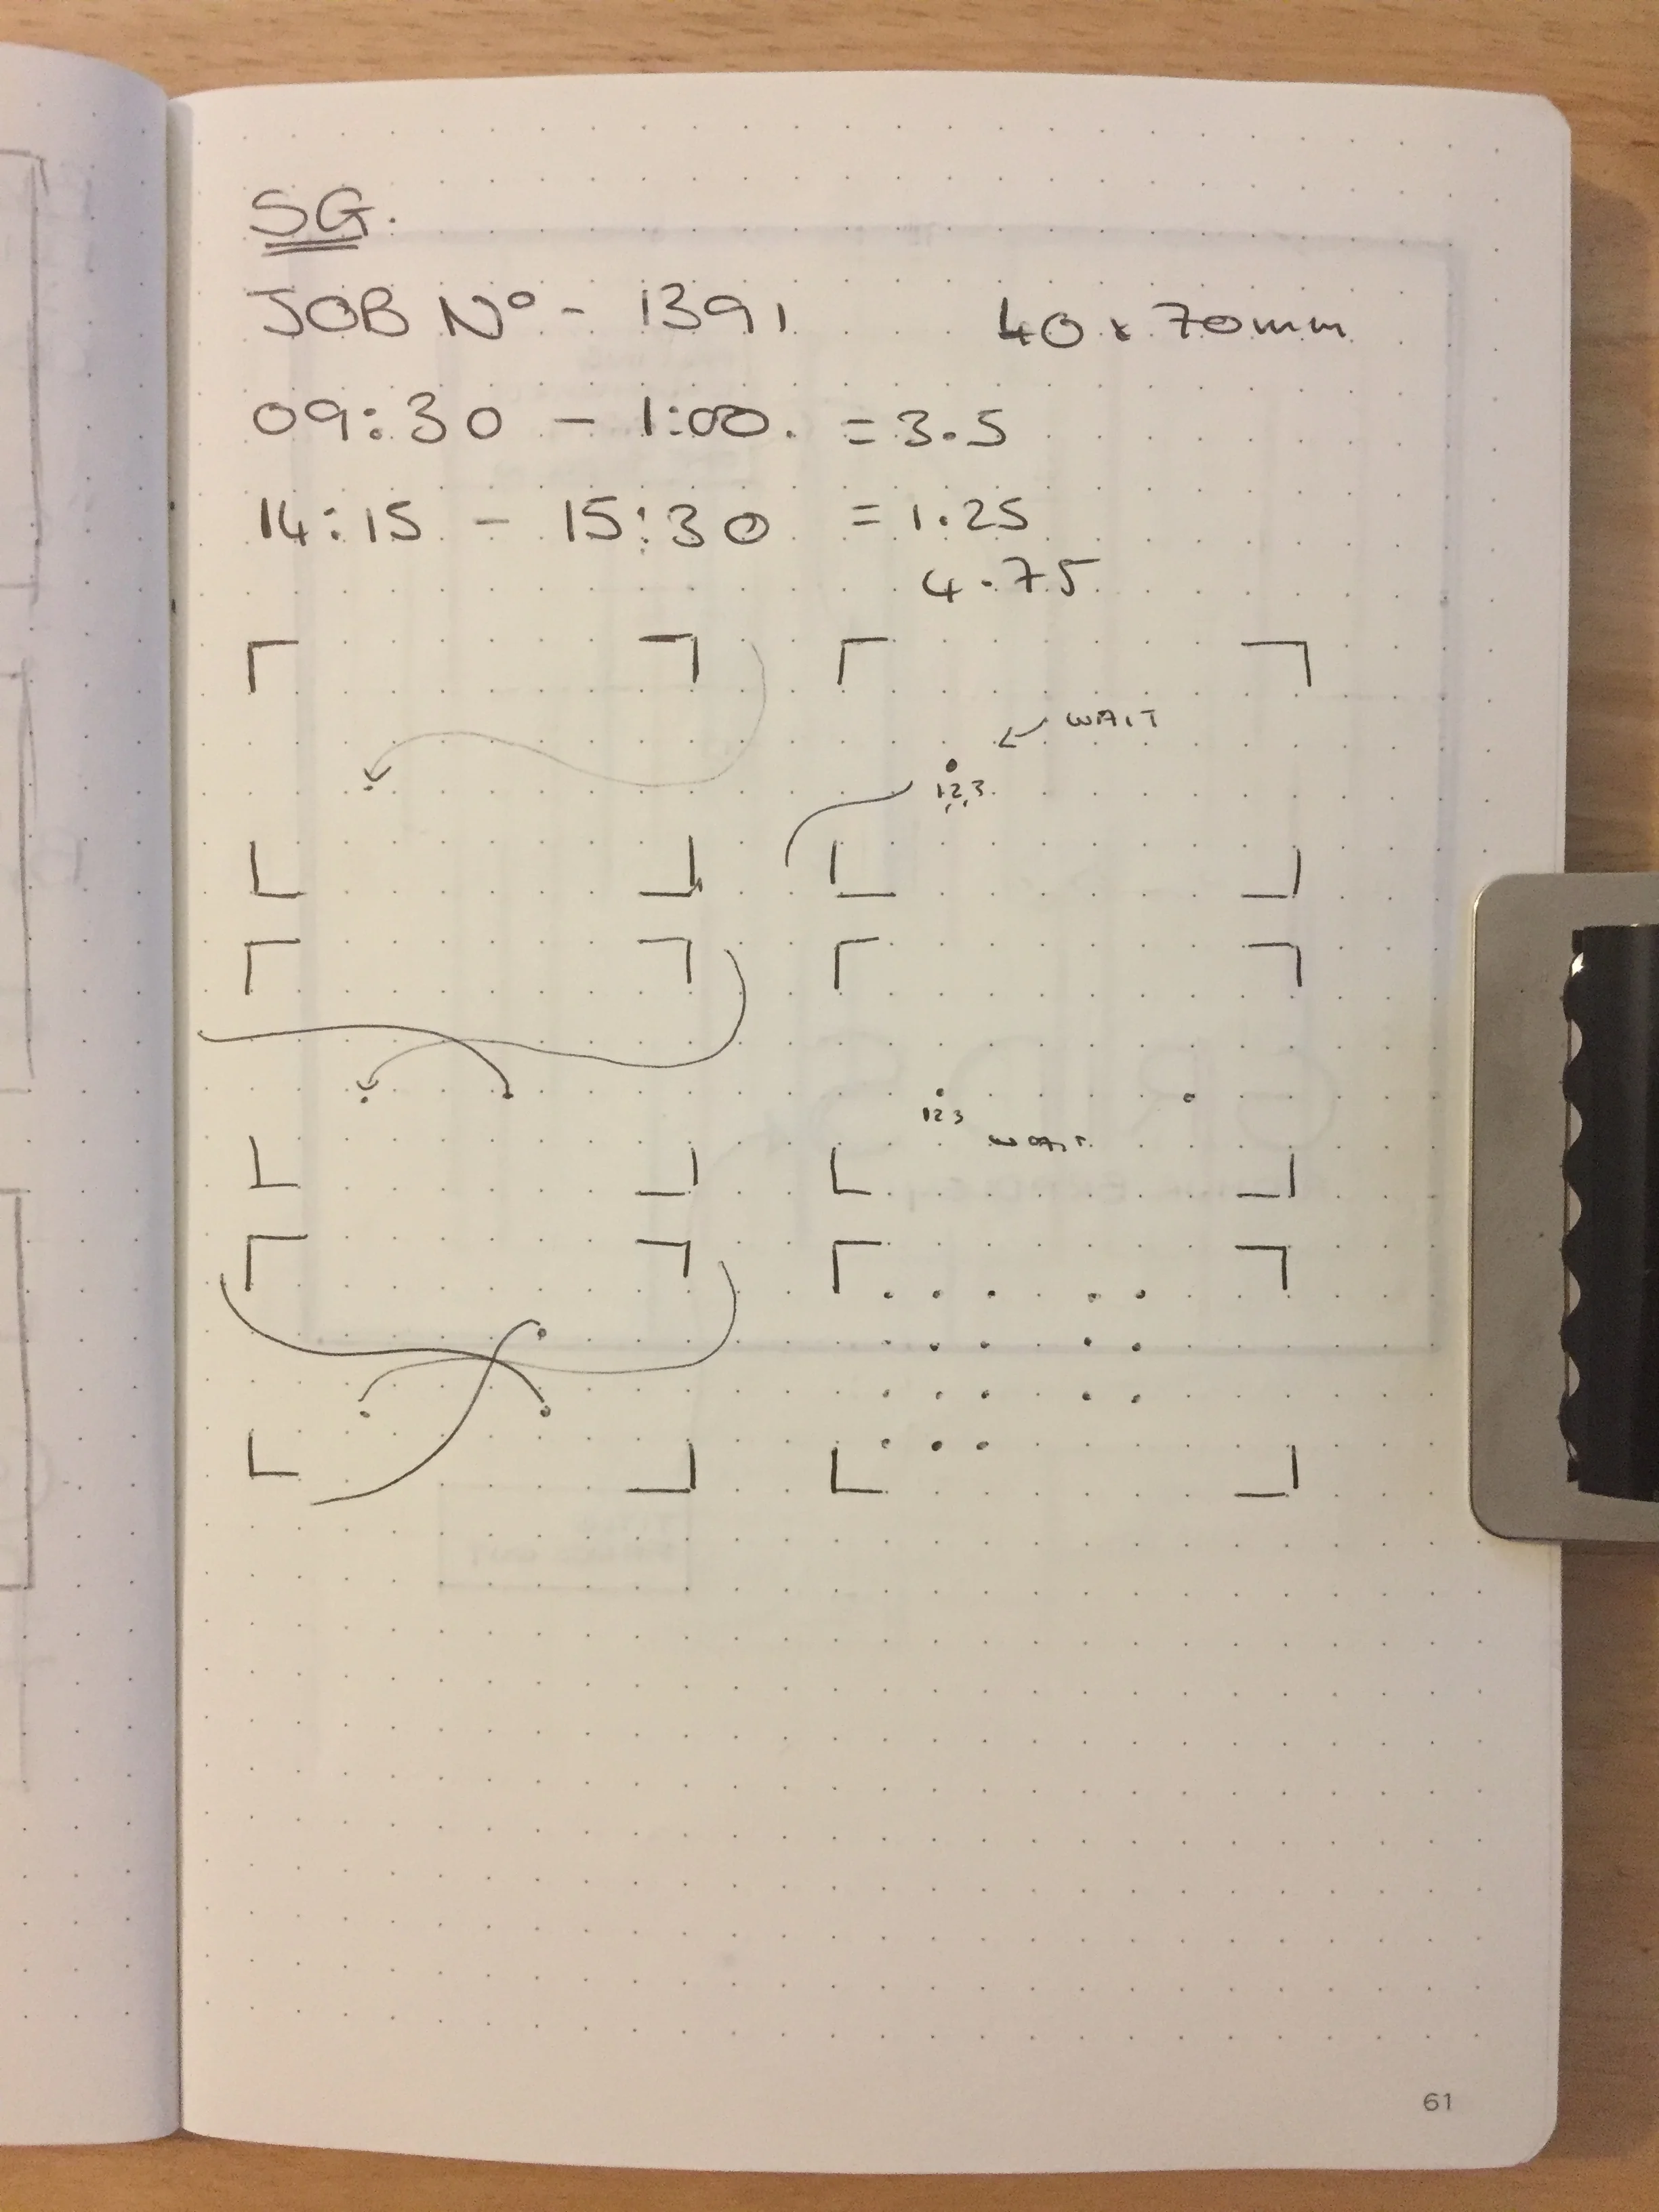 SG.
JOB Nº - 1391 40 x 70mm
09:30 - 1:00. = 3.5
14:15 - 15:30 = 1.25
4.75
WAIT
1,2,3.
123
WAIT.
61